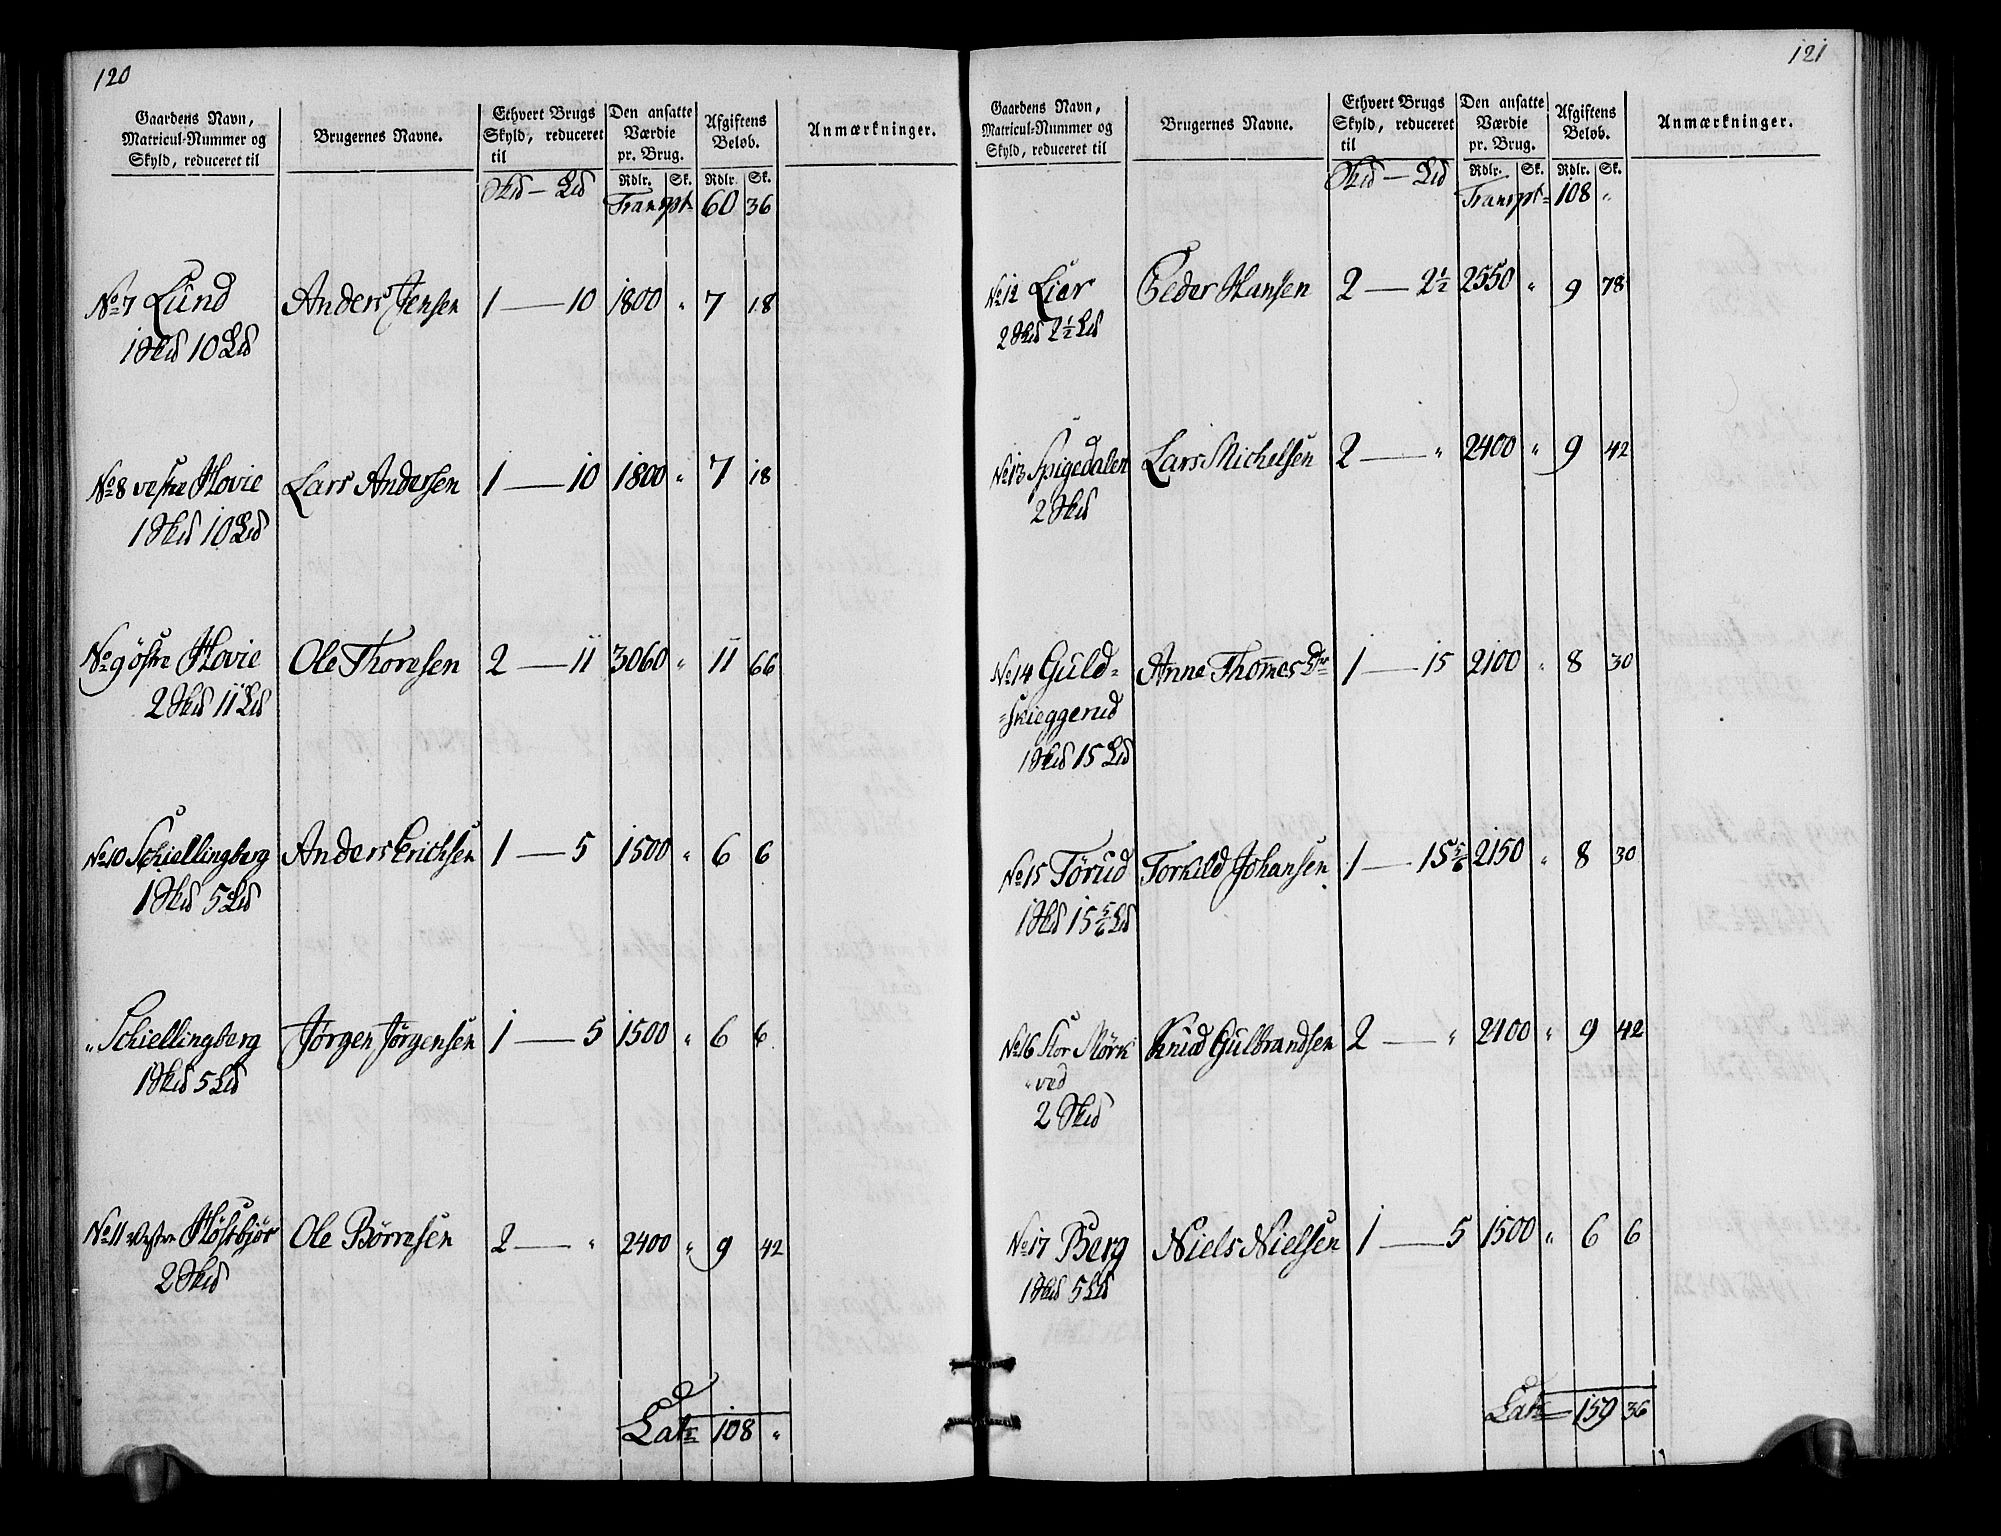 120
Gaardens Navn, Matricul-Nummer og Skyld, reduceret til
Brugernes Navne.
Ethvert Brugs Skyld, reduceret til
Den ansatte Værdie pr. Brug.
Afgiftens Beløb.
Anmærkninger.
Skd — Ld Rdlr. Sk. Rdlr. Sk.
Transpt 60 36
No 7 Lund Anders Jensen 1 — 10 1800 " 7 18
1 Skd 10 Ld
No 8 vestre Hovie Lars Andersen 1 — 10 1800 " 7 18
1 Skd 10 Ld
No 9 östre Hovie Ole Thoresen 2 — 11 3060 " 11 66
2 Skd 11 Ld
No 10 Schiellingberg Anders Erichsen 1 — 5 1500 " 6 6
1 Skd 5 Ld
" Schiellingberg Jørgen Jørgensen 1 — 5 1500 " 6 6
1 Skd 5 Ld
No 11 Vestre Höstbjör Ole Börresen 2 — " 2400 " 9 42
2 Skd
Latr 108 "
121
Gaardens Navn, Matricul-Nummer og Skyld, reduceret til
Brugernes Navne.
Ethvert Brugs Skyld, reduceret til
Den ansatte Værdie pr. Brug.
Afgiftens Beløb.
Anmærkninger.
Skd — Ld Rdlr. Sk. Rdlr. Sk.
Transpt 108 "
No 12 Lier Peder Hansen 2 — 2 1/2 2550 " 9 78
2 Skd 2 1/2 Ld
No 13 Spigedalen Lars Michelsen 2 — " 2400 " 9 42
2 Skd
No 14 Guld= Anne Thomes Dr 1 — 15 2100 " 8 30
=skieggerud
1 Skd 15 Ld
No 15 Törud Torkild Johansen 1 — 15 5/6 2150 " 8 30
1 Skd 15 5/6 Ld
No 16 Stor Mörk Knud Gulbrandsen 2 — " 2400 " 9 42
"ved
2 Skd
No 17 Berg Niels Nielsen 1 — 5 1500 " 6 6
1 Skd 5 Ld
Latr 159 36